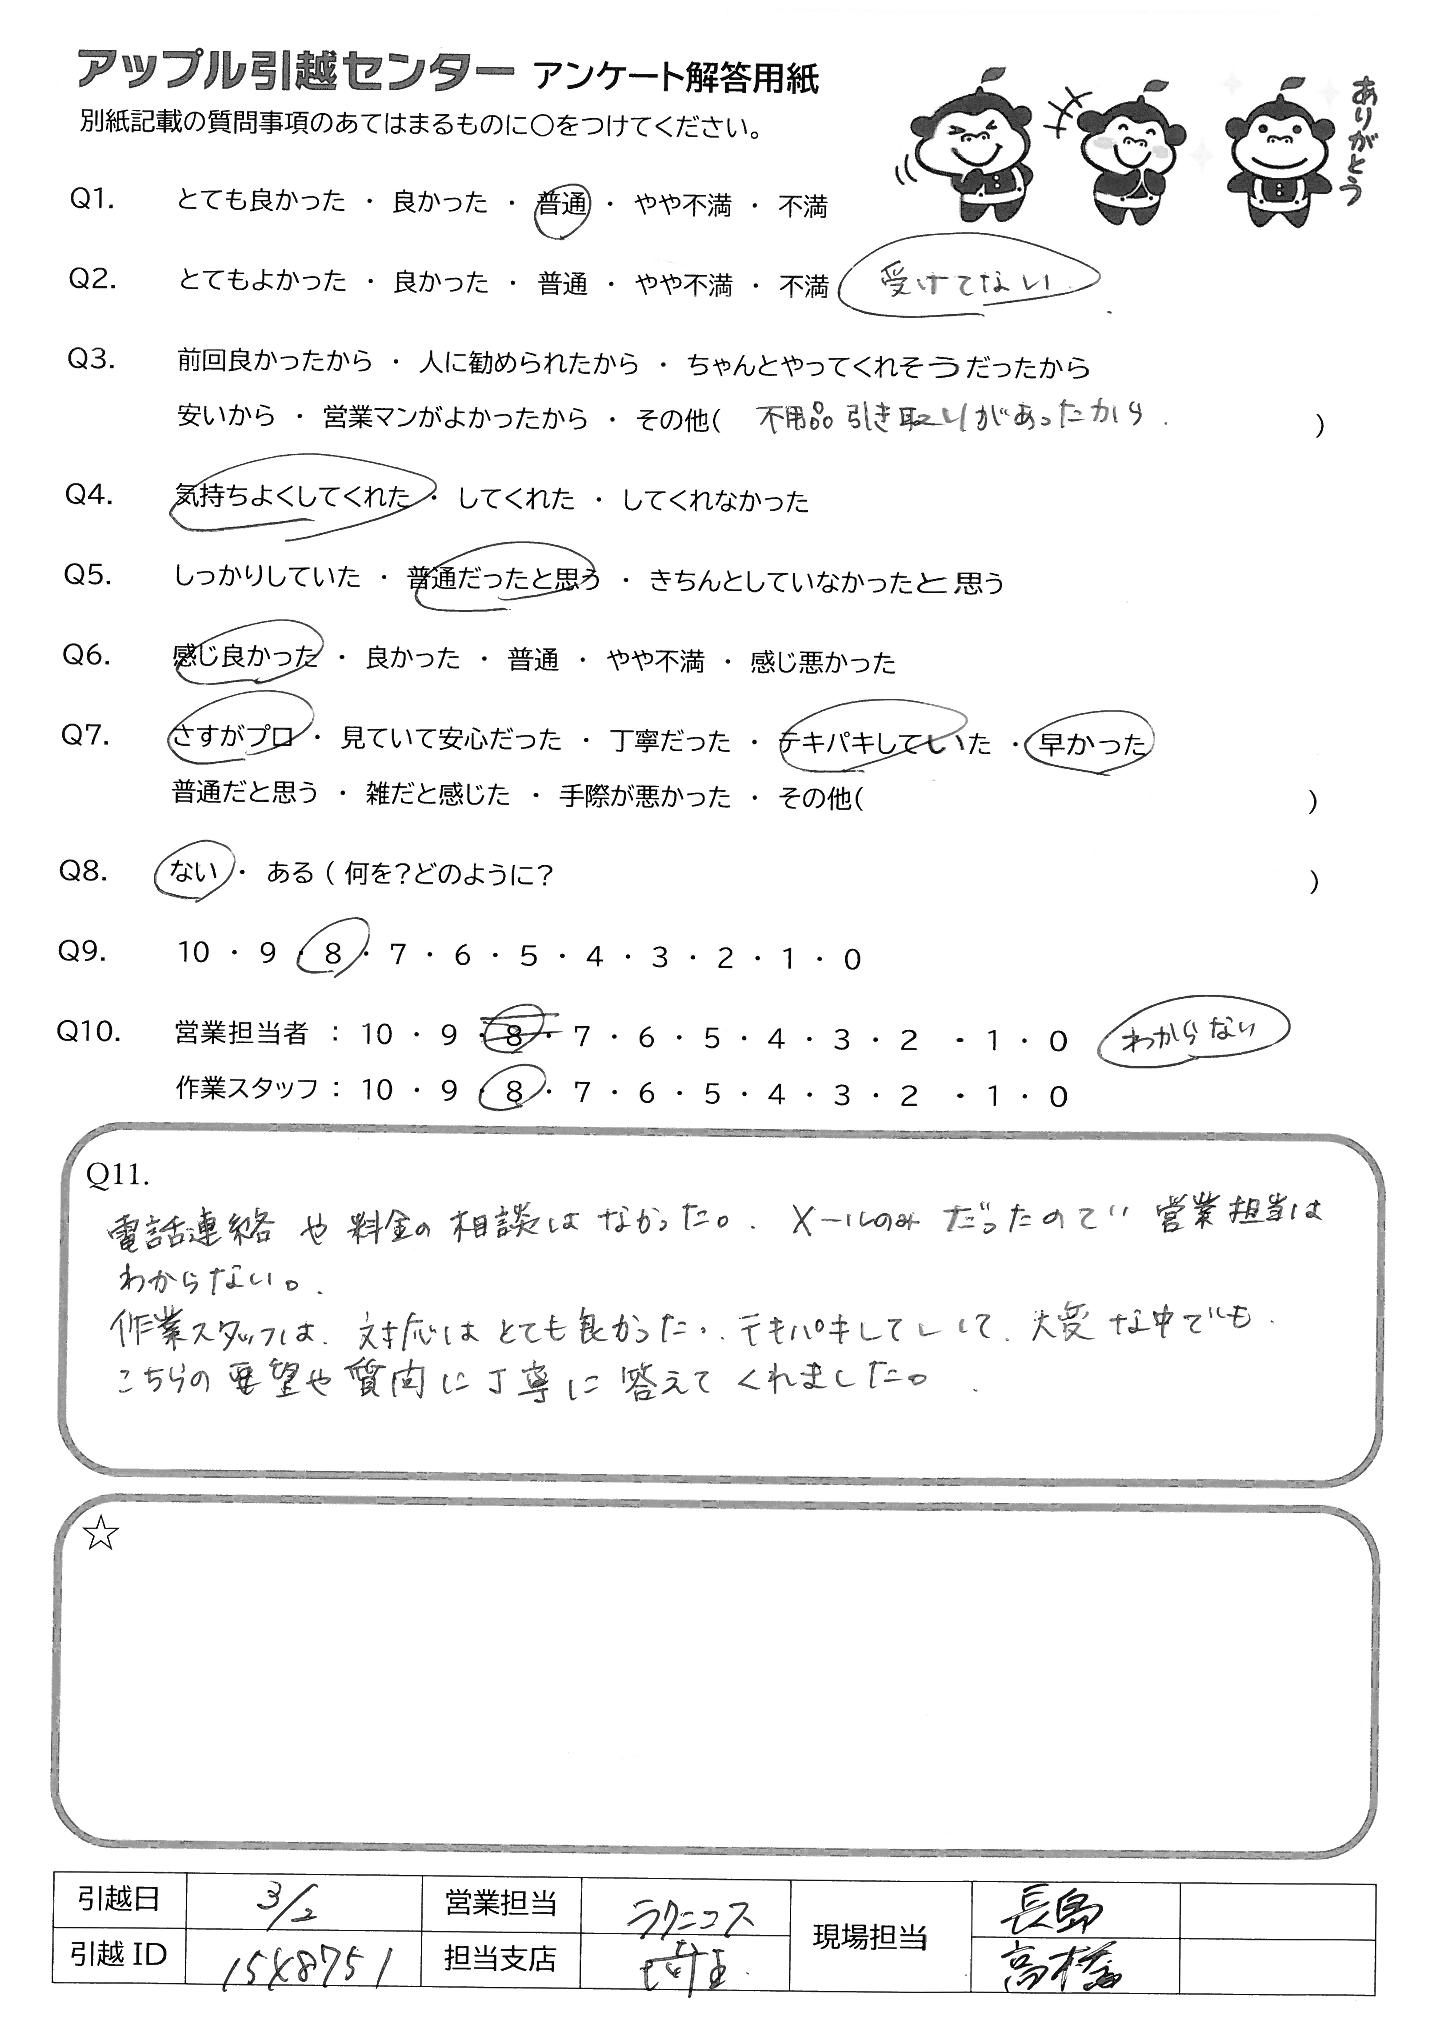 アップル引越センター アンケート解答用紙
別紙記載の質問事項のあてはまるものに〇をつけてください。
ありがとう
Q1. とても良かった ・ 良かった ・ 普通 ・ やや不満 ・ 不満
Q2. とてもよかった ・ 良かった ・ 普通 ・ やや不満 ・ 不満 受けてない
Q3. 前回良かったから ・ 人に勧められたから ・ ちゃんとやってくれそうだったから
安いから ・ 営業マンがよかったから ・ その他( 不用品引き取りがあったから. )
Q4. 気持ちよくしてくれた ・ してくれた ・ してくれなかった
Q5. しっかりしていた ・ 普通だったと思う ・ きちんとしていなかったと思う
Q6. 感じ良かった ・ 良かった ・ 普通 ・ やや不満 ・ 感じ悪かった
Q7. さすがプロ ・ 見ていて安心だった ・ 丁寧だった ・ テキパキしていた ・ 早かった
普通だと思う ・ 雑だと感じた ・ 手際が悪かった ・ その他( )
Q8. ない ・ ある ( 何を?どのように? )
Q9. 10 ・ 9 ・ 8 ・ 7 ・ 6 ・ 5 ・ 4 ・ 3 ・ 2 ・ 1 ・ 0
Q10. 営業担当者 : 10 ・ 9 ・ 8 ・ 7 ・ 6 ・ 5 ・ 4 ・ 3 ・ 2 ・ 1 ・ 0 わからない
作業スタッフ : 10 ・ 9 ・ 8 ・ 7 ・ 6 ・ 5 ・ 4 ・ 3 ・ 2 ・ 1 ・ 0
Q11.
電話連絡や料金の相談はなかった。メールのみだったので 営業担当は
わからない。
作業スタッフは、対応はとても良かった. テキパキしていて、大変な中でも
こちらの要望や質問に丁寧に答えてくれました。
☆
引越日 3/2 営業担当 ラクニコス 現場担当 長島
引越ID 1548751 担当支店 埼玉 高橋